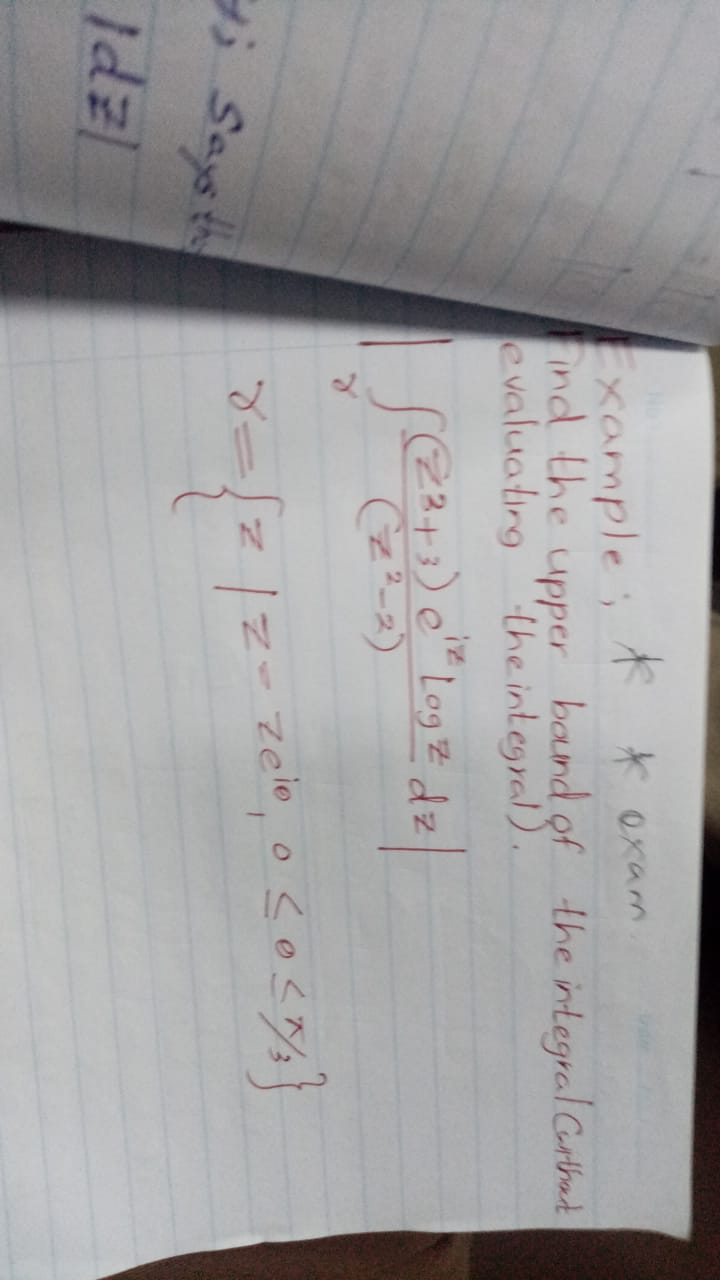 ti, Says th
|dz|
Example; * * exam.
Find the upper bound of the integral (without
evaluating the integral).
| ∫γ (z²+3) e^iz Log z / (z²-2) dz |
γ = { z / z = ze^iθ, 0 ≤ θ ≤ π/3 }